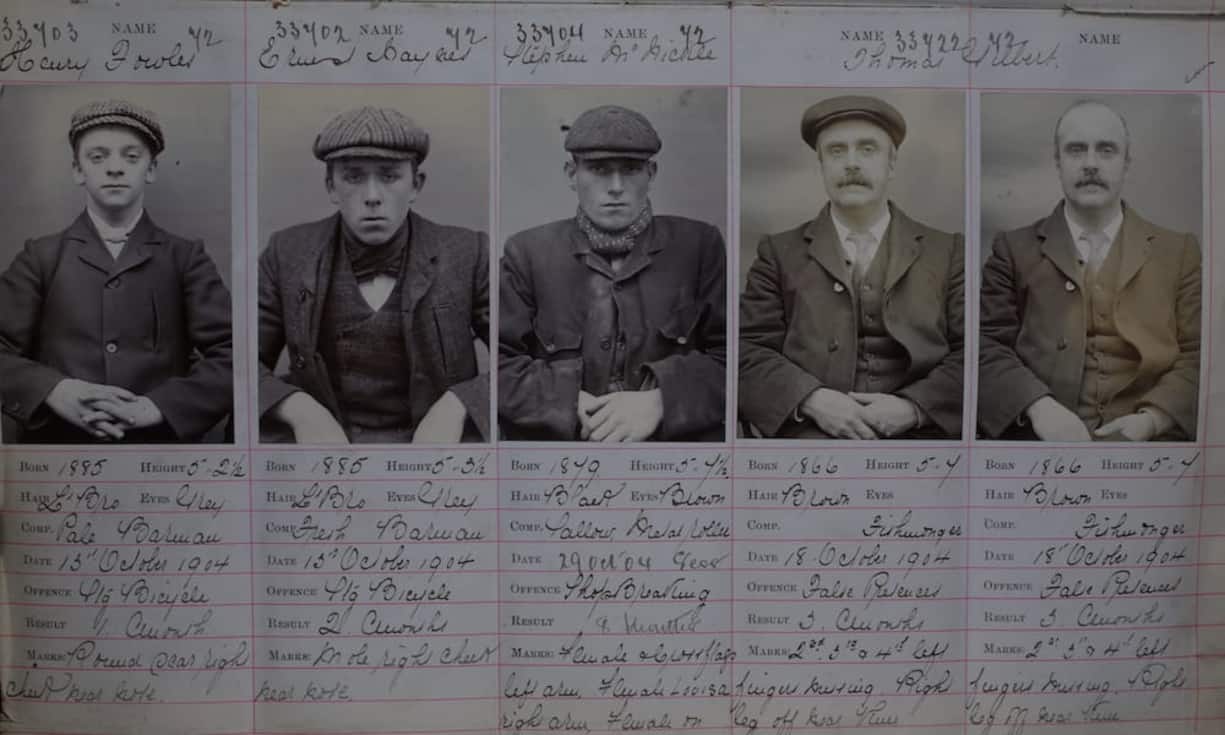 33703 NAME 72
Henry Fowles
Born 1885 Height 5-2½
Hair Lt Bro Eyes Grey
Comp. Pale Barman
Date 13th October 1904
Offence Stg Bicycle
Result 1. Cmonth
Marks: Round scar right
cheek near nose.
33702 NAME 72
Ernest Haynes
Born 1885 Height 5-3½
Hair Lt Bro Eyes Grey
Comp. Fresh Barman
Date 13th October 1904
Offence Stg Bicycle
Result 2. Cmonths
Marks: Mole, right cheek
near nose.
33704 NAME 72
Stephen
Born 1879 Height 5-7½
Hair Black Eyes Brown
Comp. Sallow, Metal roller
Date 29 Oct 04
Offence Shop Breaking
Result Months
Marks: Female & Cross flags
left arm, Female Louisa
right arm, Female on
NAME 33722 72
Thomas Gilbert.
Born 1866 Height 5-4
Hair Brown Eyes
Comp. Fishmonger
Date 18 October 1904
Offence False Pretences
Result 3. Cmonths
Marks: 2nd. 3rd & 4th left
fingers missing. Right
leg off near knee
NAME
Born 1866 Height 5-4
Hair Brown Eyes
Comp. Fishmonger
Date 18th October 1904
Offence False Pretences
Result 3. Cmonths
Marks: 2nd 3rd & 4th left
fingers missing. Right
leg off near knee